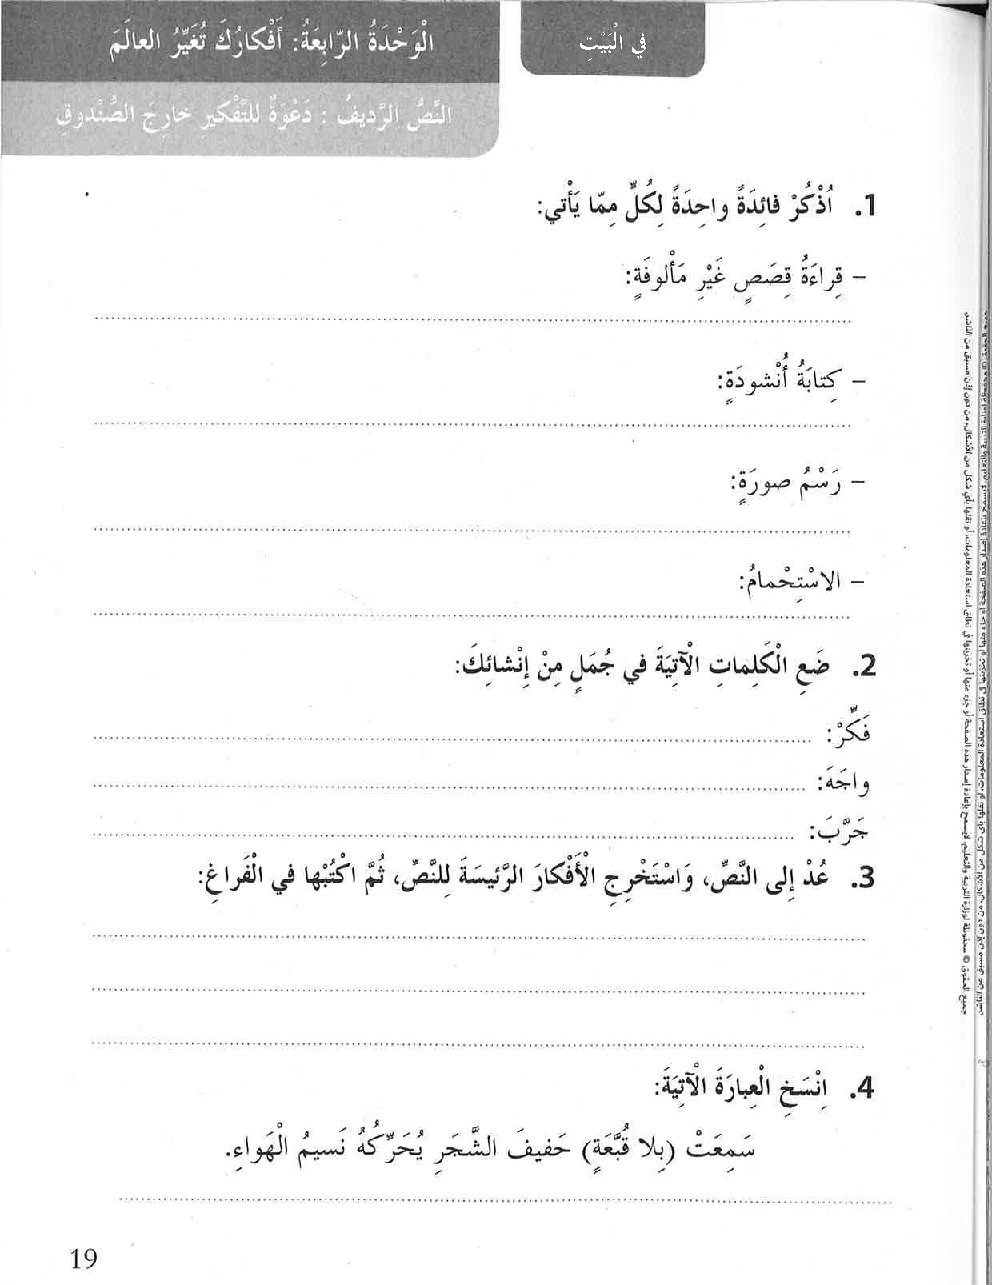 في الْبَيْتِ
الْوَحْدَةُ الرّابِعَةُ: أَفْكارُكَ تُغَيِّرُ العالَمَ
النَّصُّ الرَّديفُ : دَعْوَةٌ لِلتَّفْكيرِ خارِجَ الصُّنْدوقِ
1. اُذْكُرْ فائِدَةً واحِدَةً لِكُلٍّ مِمّا يَأْتي:
– قِراءَةُ قِصَصٍ غَيْرِ مَأْلوفَةٍ:
– كِتابَةُ أُنْشودَةٍ:
– رَسْمُ صورَةٍ:
– الاسْتِحْمامُ:
2. ضَعِ الْكَلِماتِ الْآتِيَةَ في جُمَلٍ مِنْ إِنْشائِكَ:
فَكِّرْ:
واجَهَ:
جَرَّبَ:
3. عُدْ إِلى النَّصِّ، وَاسْتَخْرِجِ الْأَفْكارَ الرَّئيسَةَ لِلنَّصِّ، ثُمَّ اكْتُبْها في الْفَراغِ:
4. اِنْسَخِ الْعِبارَةَ الْآتِيَةَ:
سَمِعَتْ (بِلا قُبَّعَةٍ) حَفيفَ الشَّجَرِ يُحَرِّكُهُ نَسيمُ الْهَواءِ.
19